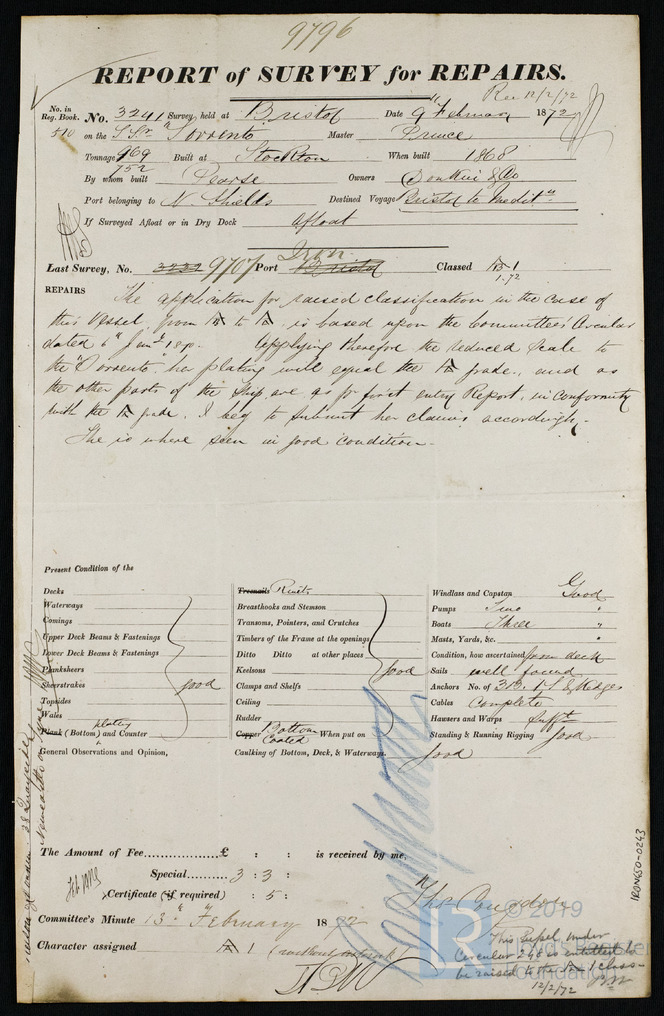 9796
REPORT of SURVEY for REPAIRS.
Rec 12/2/72
No. in Reg. Book. No. 3241 Survey held at Bristol Date 9 February 1872
510 on the S Sr "Sorrento" Master Pruce
Tonnage 969 Built at Stockton When built 1868
752
By whom built Pearse Owners Donkin & Co
Port belonging to N. Shields Destined Voyage Bristol to Medit
If Surveyed Afloat or in Dry Dock afloat
Iron
Last Survey, No. 3232 9707 Port Bristol Classed 1
1.72
REPAIRS The application for raised classification in the case of
this Vessel from A to A is based upon the Committee's Circular
dated 6th Jany 1870. Applying therefore the reduced scale to
the "Sorrento" her plating will equal the A grade, and as
the other parts of the Ship are as per first entry Report, in conformity
with the A grade, I beg to submit her claims accordingly.
She is where seen in good condition.
Present Condition of the
Decks
Waterways
Comings
Upper Deck Beams & Fastenings
Lower Deck Beams & Fastenings
Planksheers
Sheerstrakes good
Topsides
Wales
plating
Plank (Bottom) and Counter
General Observations and Opinion,
Treenails Rivets
Breasthooks and Stemson
Transoms, Pointers, and Crutches
Timbers of the Frame at the openings
Ditto Ditto at other places
Keelsons good
Clamps and Shelfs
Ceiling
Rudder
Copper Bottom Coated When put on
Caulking of Bottom, Deck, & Waterways. good
Windlass and Capstan Good
Pumps Two "
Boats Three "
Masts, Yards, &c. "
Condition, how ascertained from deck
Sails well found
Anchors No. of 3 B. 1 S & Kedges
Cables Complete
Hawsers and Warps Sufft
Standing & Running Rigging good
The Amount of Fee £ : : is received by me,
Special 3 : 3 :
Certificate (if required) : 5 :
Thos Congdon
Committee's Minute 13th February 1872
Character assigned A 1
This Vessel under
Circular 248 is entitled to
be raised to the A 1 class
12/2/72
IRON650-0243
© 2019
Lloyd's Register
Foundation